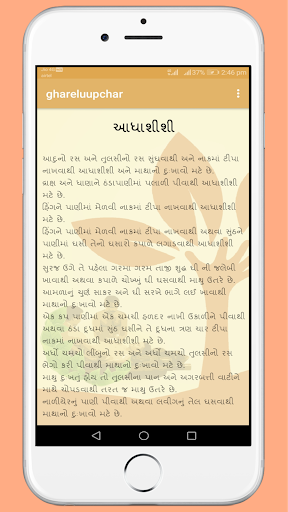 2:46 pm
ghareluupchar
આધાશીશી
આદુનો રસ અને તુલસીનો રસ સુંઘવાથી અને નાકમાં ટીપા
નાખવાથી આધાશીશી અને માથાનો દુ:ખાવો મટે છે.
દ્રાક્ષ અને ધાણાને ઠંડાપાણીમાં પલાળી પીવાથી આધાશીશી
મટે છે.
હિંગને પાણીમાં મેળવી નાકમાં ટીપા નાખવાથી આધાશીશી
મટે છે.
હિંગને પાણીમાં મેળવી નાકમાં ટીપા નાખવાથી અથવા સુંઠને
પાણીમાં ઘસી તેનો ઘસારો કપાળે લગાડવાથી આધાશીશી
મટે છે.
સુરજ ઉગે તે પહેલા ગરમા ગરમ તાજી શુદ્ધ ઘી ની જલેબી
ખાવાથી અથવા કપાળે ચોખ્ખુ ઘી ઘસવાથી માથુ ઉતરે છે.
આમળાનુ ચુર્ણ સાકર અને ઘી સરખે ભાગે લઈ ખાવાથી
માથાનો દુ:ખાવો મટે છે.
એક કપ પાણીમાં એક ચમચી હળદર નાખી ઉકાળીને પીવાથી
અથવા ઠંડા દુધમાં સુંઠ ઘસીને તે દુધના ત્રણ ચાર ટીપા
નાકમા નાખવાથી આધાશીશી મટે છે.
અર્ધી ચમચી લીંબુનો રસ અને અર્ધી ચમચો તુલસીનો રસ
ભેગો કરી પીવાથી માથાનો દુ:ખાવો મટે છે.
માથુ દુ:ખતુ હોય તો તુલસીના પાન અને અગરબત્તી વાટીને
માથે ચોપડવાથી તરત જ માથુ ઉતરે છે.
નાળીયેરનુ પાણી પીવાથી અથવા લવીંગનુ તેલ ઘસવાથી
માથાનો દુ:ખાવો મટે છે.